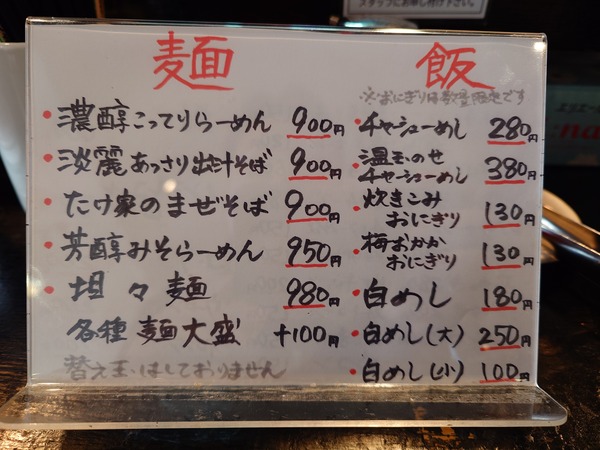 スタッフにお申し付け下さい。
麺
・濃醇こってりらーめん 900円
・淡麗あっさり出汁そば 900円
・たけ家のまぜそば 900円
・芳醇みそらーめん 950円
・坦々麺 980円
各種麺大盛 +100円
替え玉はしておりません
飯
※おにぎりは数量限定です
・チャーシューめし 280円
・温玉のせ
チャーシューめし 380円
・炊きこみ
おにぎり 130円
・梅おかか
おにぎり 130円
・白めし 180円
・白めし(大) 250円
・白めし(小) 100円